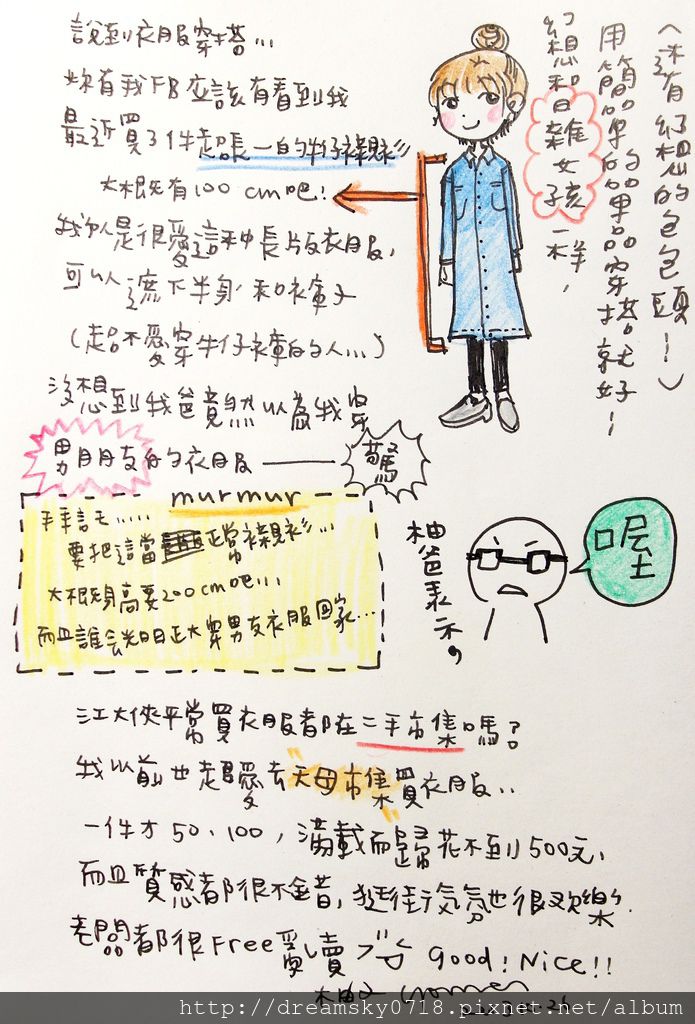 說到衣服穿搭...
妳有我FB應該有看到我
最近買了件超長一的牛仔襯衫
大概有100cm吧!
我個人是很愛這種長版衣服,
可以遮下半身和褲子
(超不愛穿牛仔褲的人...)
沒想到我爸竟然以為我穿
男朋友的衣服——驚
(還有幻想的包包頭!)
用簡單的單品穿搭就好~
幻想和日雜女孩一樣,
murmur
手手話天.....
要把這當正常襯衫...
大概身高要200cm吧...
而且誰会光明正大穿男友衣服回家...
柚爸表示。
呢
江大俠平常買衣服都在二手市集嗎?
我以前也超愛去"天母市集"買衣服..
一件才50、100,滿載而歸花不到500元,
而且質感都很不錯,逛街氣氛也很歡樂.
老闆都很Free亂賣 Good!Nice!!
柚子
http://dreamsky0718.pixnet.net/album